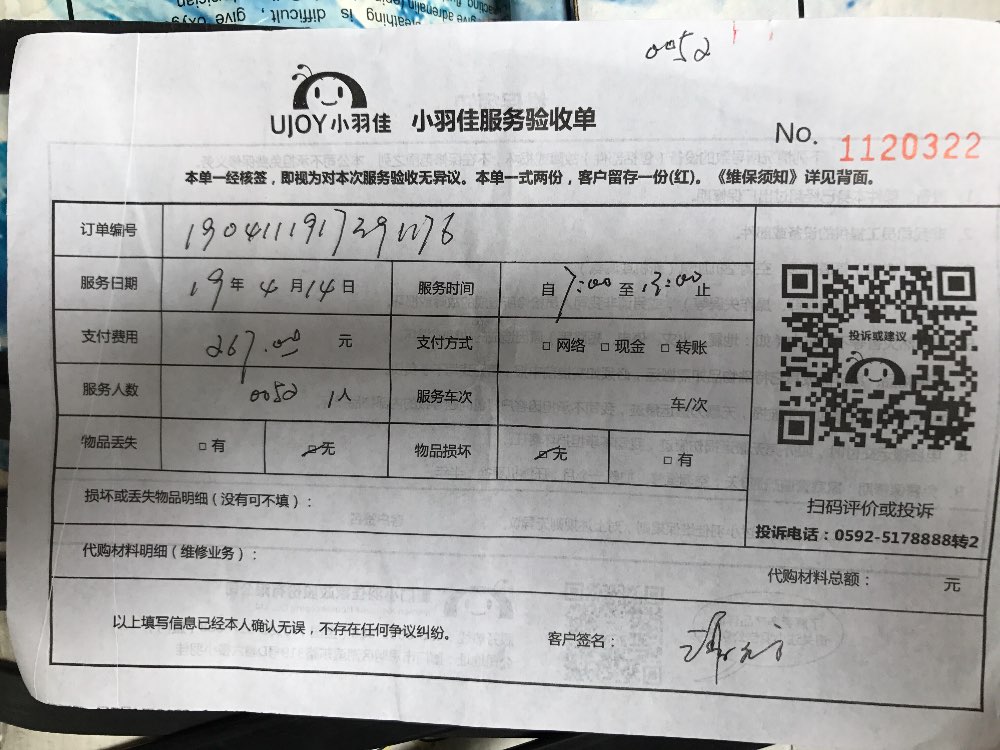 0052
UJOY小羽佳 小羽佳服务验收单
No. 1120322
本单一经核签，即视为对本次服务验收无异议。本单一式两份，客户留存一份(红)。《维保须知》详见背面。
订单编号
服务日期 19年4月14日 服务时间 自7:00至13:00止
支付费用 267.00 元 支付方式 □网络 □现金 □转账
服务人数 0052 1人 服务车次 车/次
物品丢失 □有 □无 物品损坏 □无 □有
投诉或建议
扫码评价或投诉
投诉电话：0592-5178888转2
损坏或丢失物品明细（没有可不填）：
代购材料明细（维修业务）：
代购材料总额： 元
以上填写信息已经本人确认无误，不存在任何争议纠纷。 客户签名：